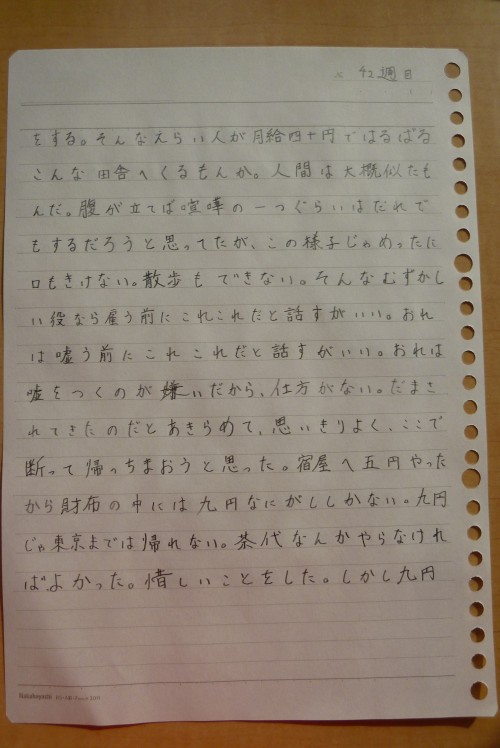 × 42週目
をする。そんなえらい人が月給四十円ではるばる
こんな田舎へくるもんか。人間は大概似たも
んだ。腹が立てば喧嘩の一つぐらいはだれで
もするだろうと思ってたが、この様子じゃめったに
口もきけない。散歩もできない。そんなむずかし
い役なら雇う前にこれこれだと話すがいい。おれ
は嘘う前にこれこれだと話すがいい。おれは
嘘をつくのが嫌いだから、仕方がない。だまさ
れてきたのだとあきらめて、思いきりよく、ここで
断って帰っちまおうと思った。宿屋へ五円やった
から財布の中には九円なにがししかない。九円
じゃ東京までは帰れない。茶代なんかやらなけれ
ばよかった。惜しいことをした。しかし九円